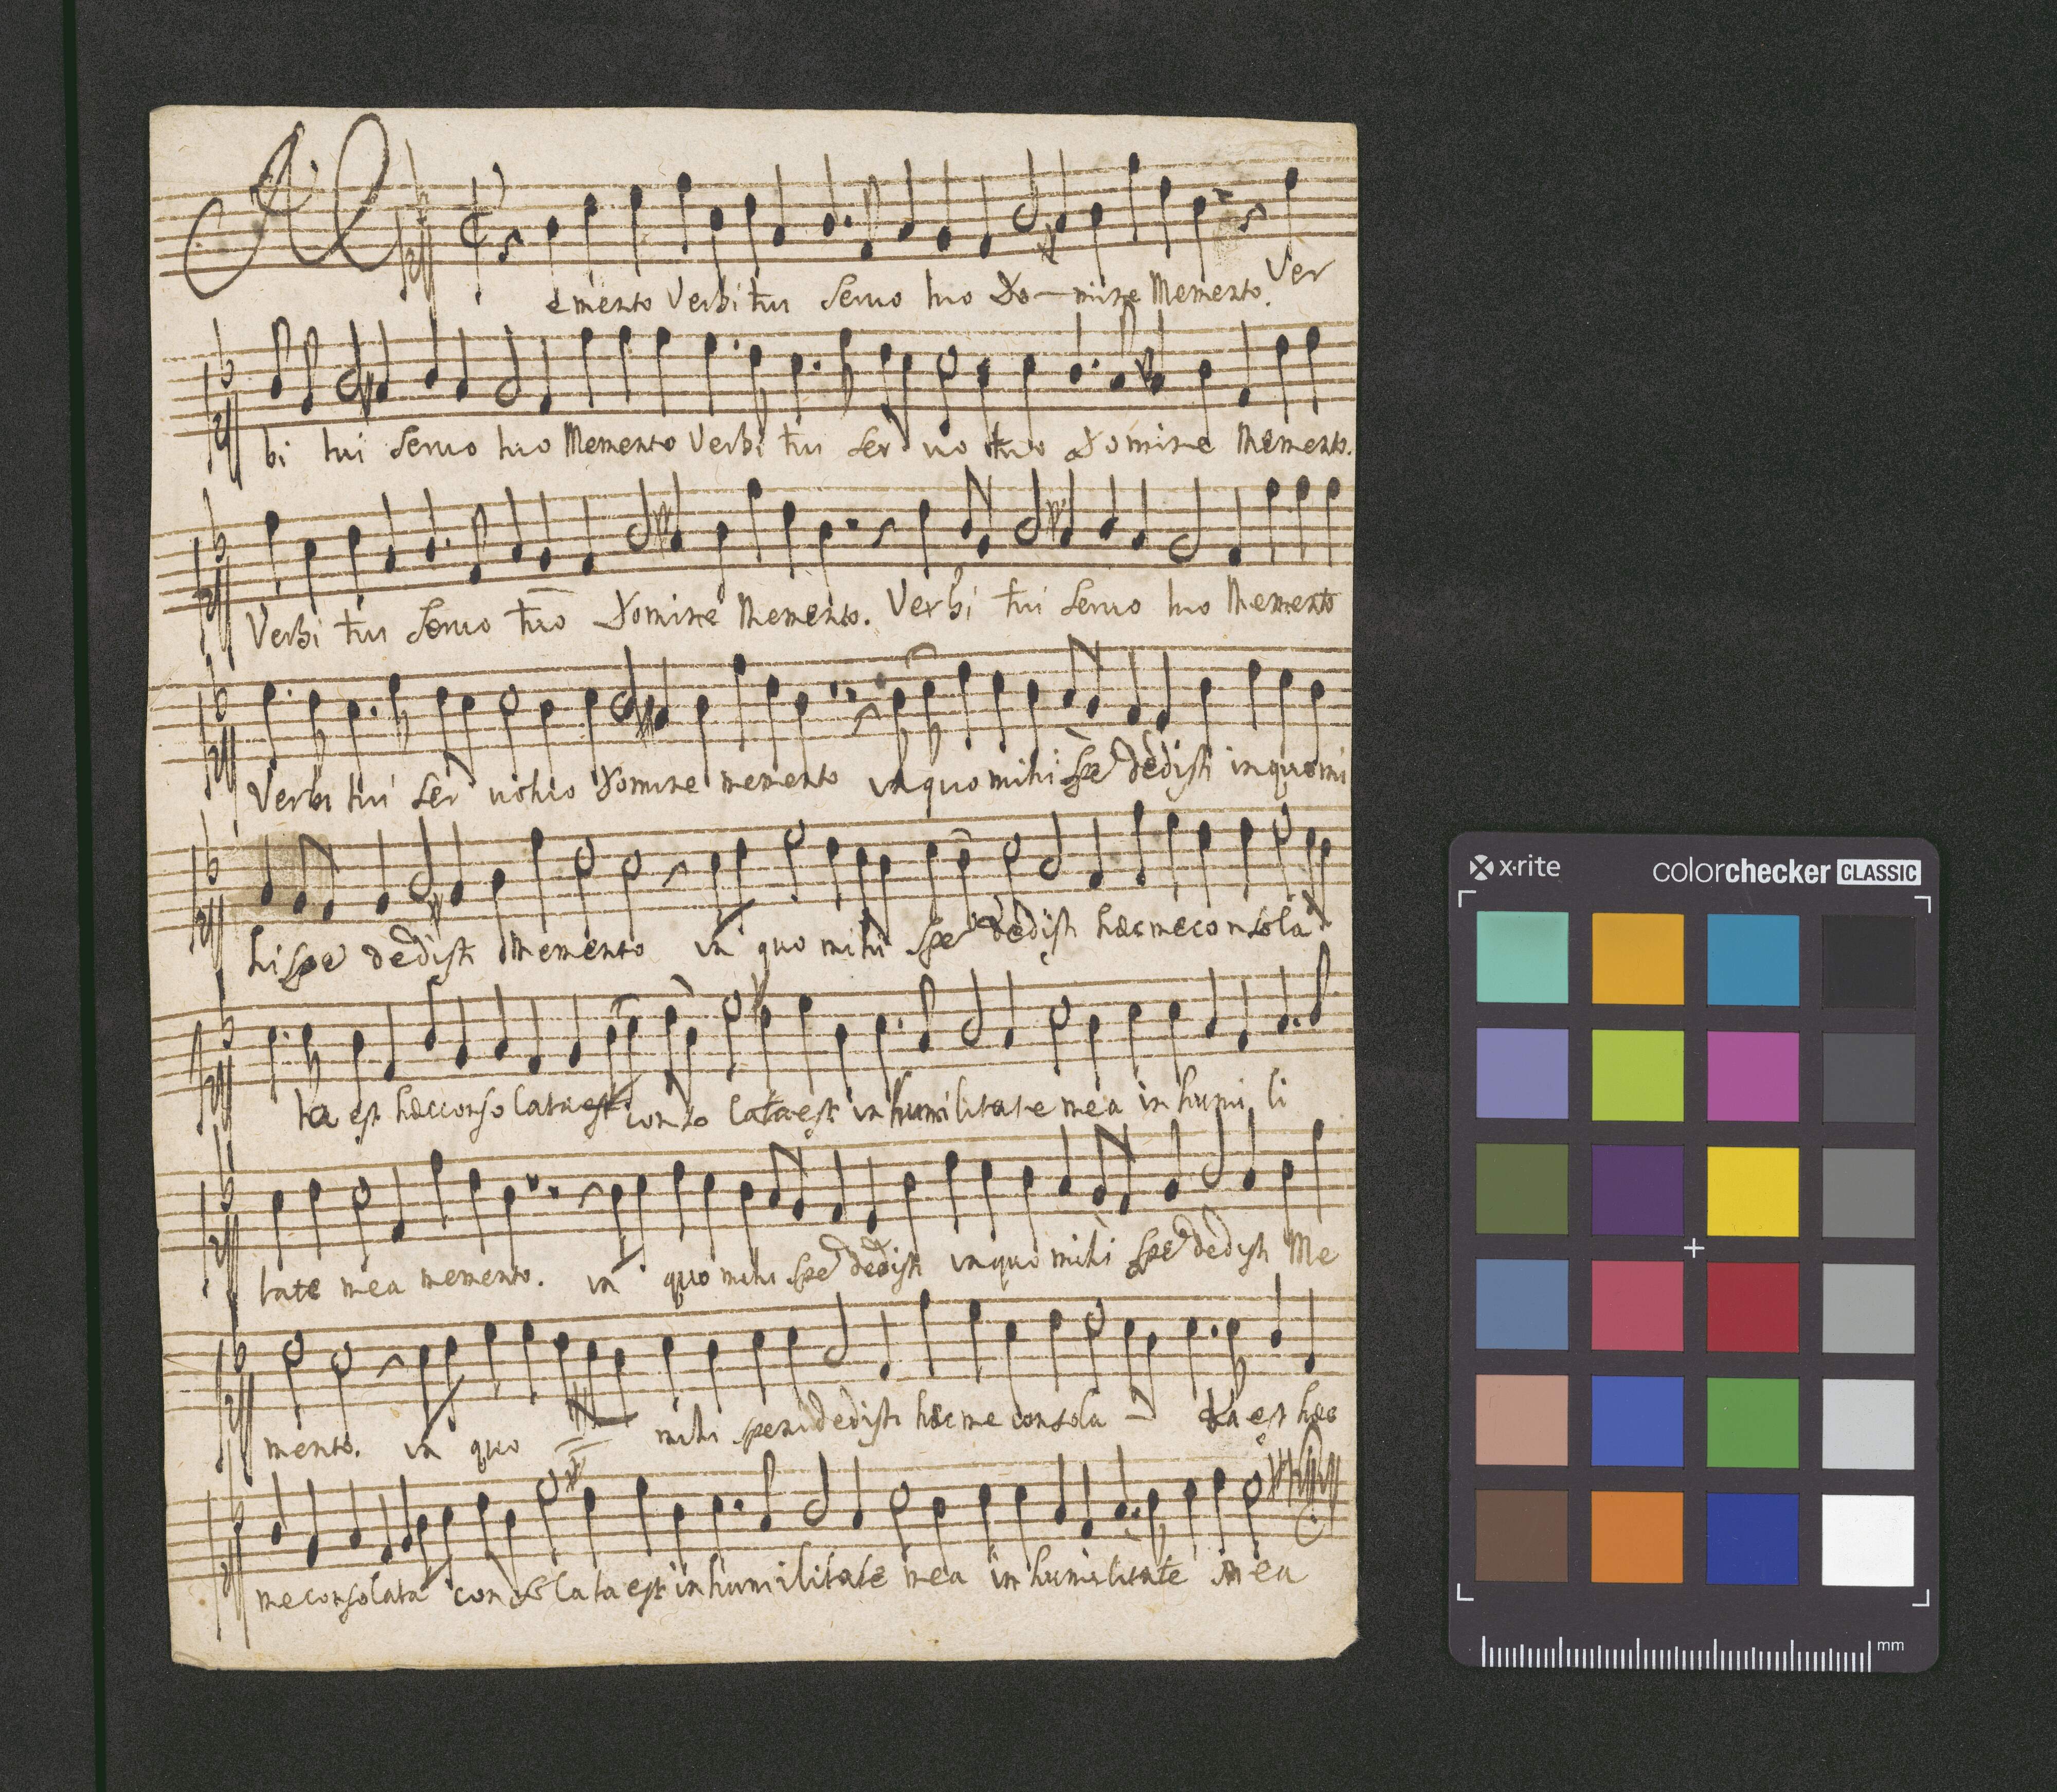 Memento Verbi tui seruo tuo Do-mine Memento. Ver
bi tui seruo tuo Memento Verbi tui ser uo tuo Domine Memento.
Verbi tui Seruo tuo Domine Memento. Verbi tui seruo tuo Memento
Verbi tui ser uo tuo Domine memento in quo mihi spē dedisti in quo mi
hi spē dedisti Memento in quo mihi spē dedisti hæc me consola
ta est hæc consolata est con so lata est in humilitate mea in humi li
tate mea memento. in quo mihi spē dedisti in quo mihi spē dedisti Me
mento. in quo mihi spem dedisti hæc me consola - ta est hæc
me consolata con so lata est in humilitate mea in humilitate mea
x·rite colorchecker CLASSIC
mm